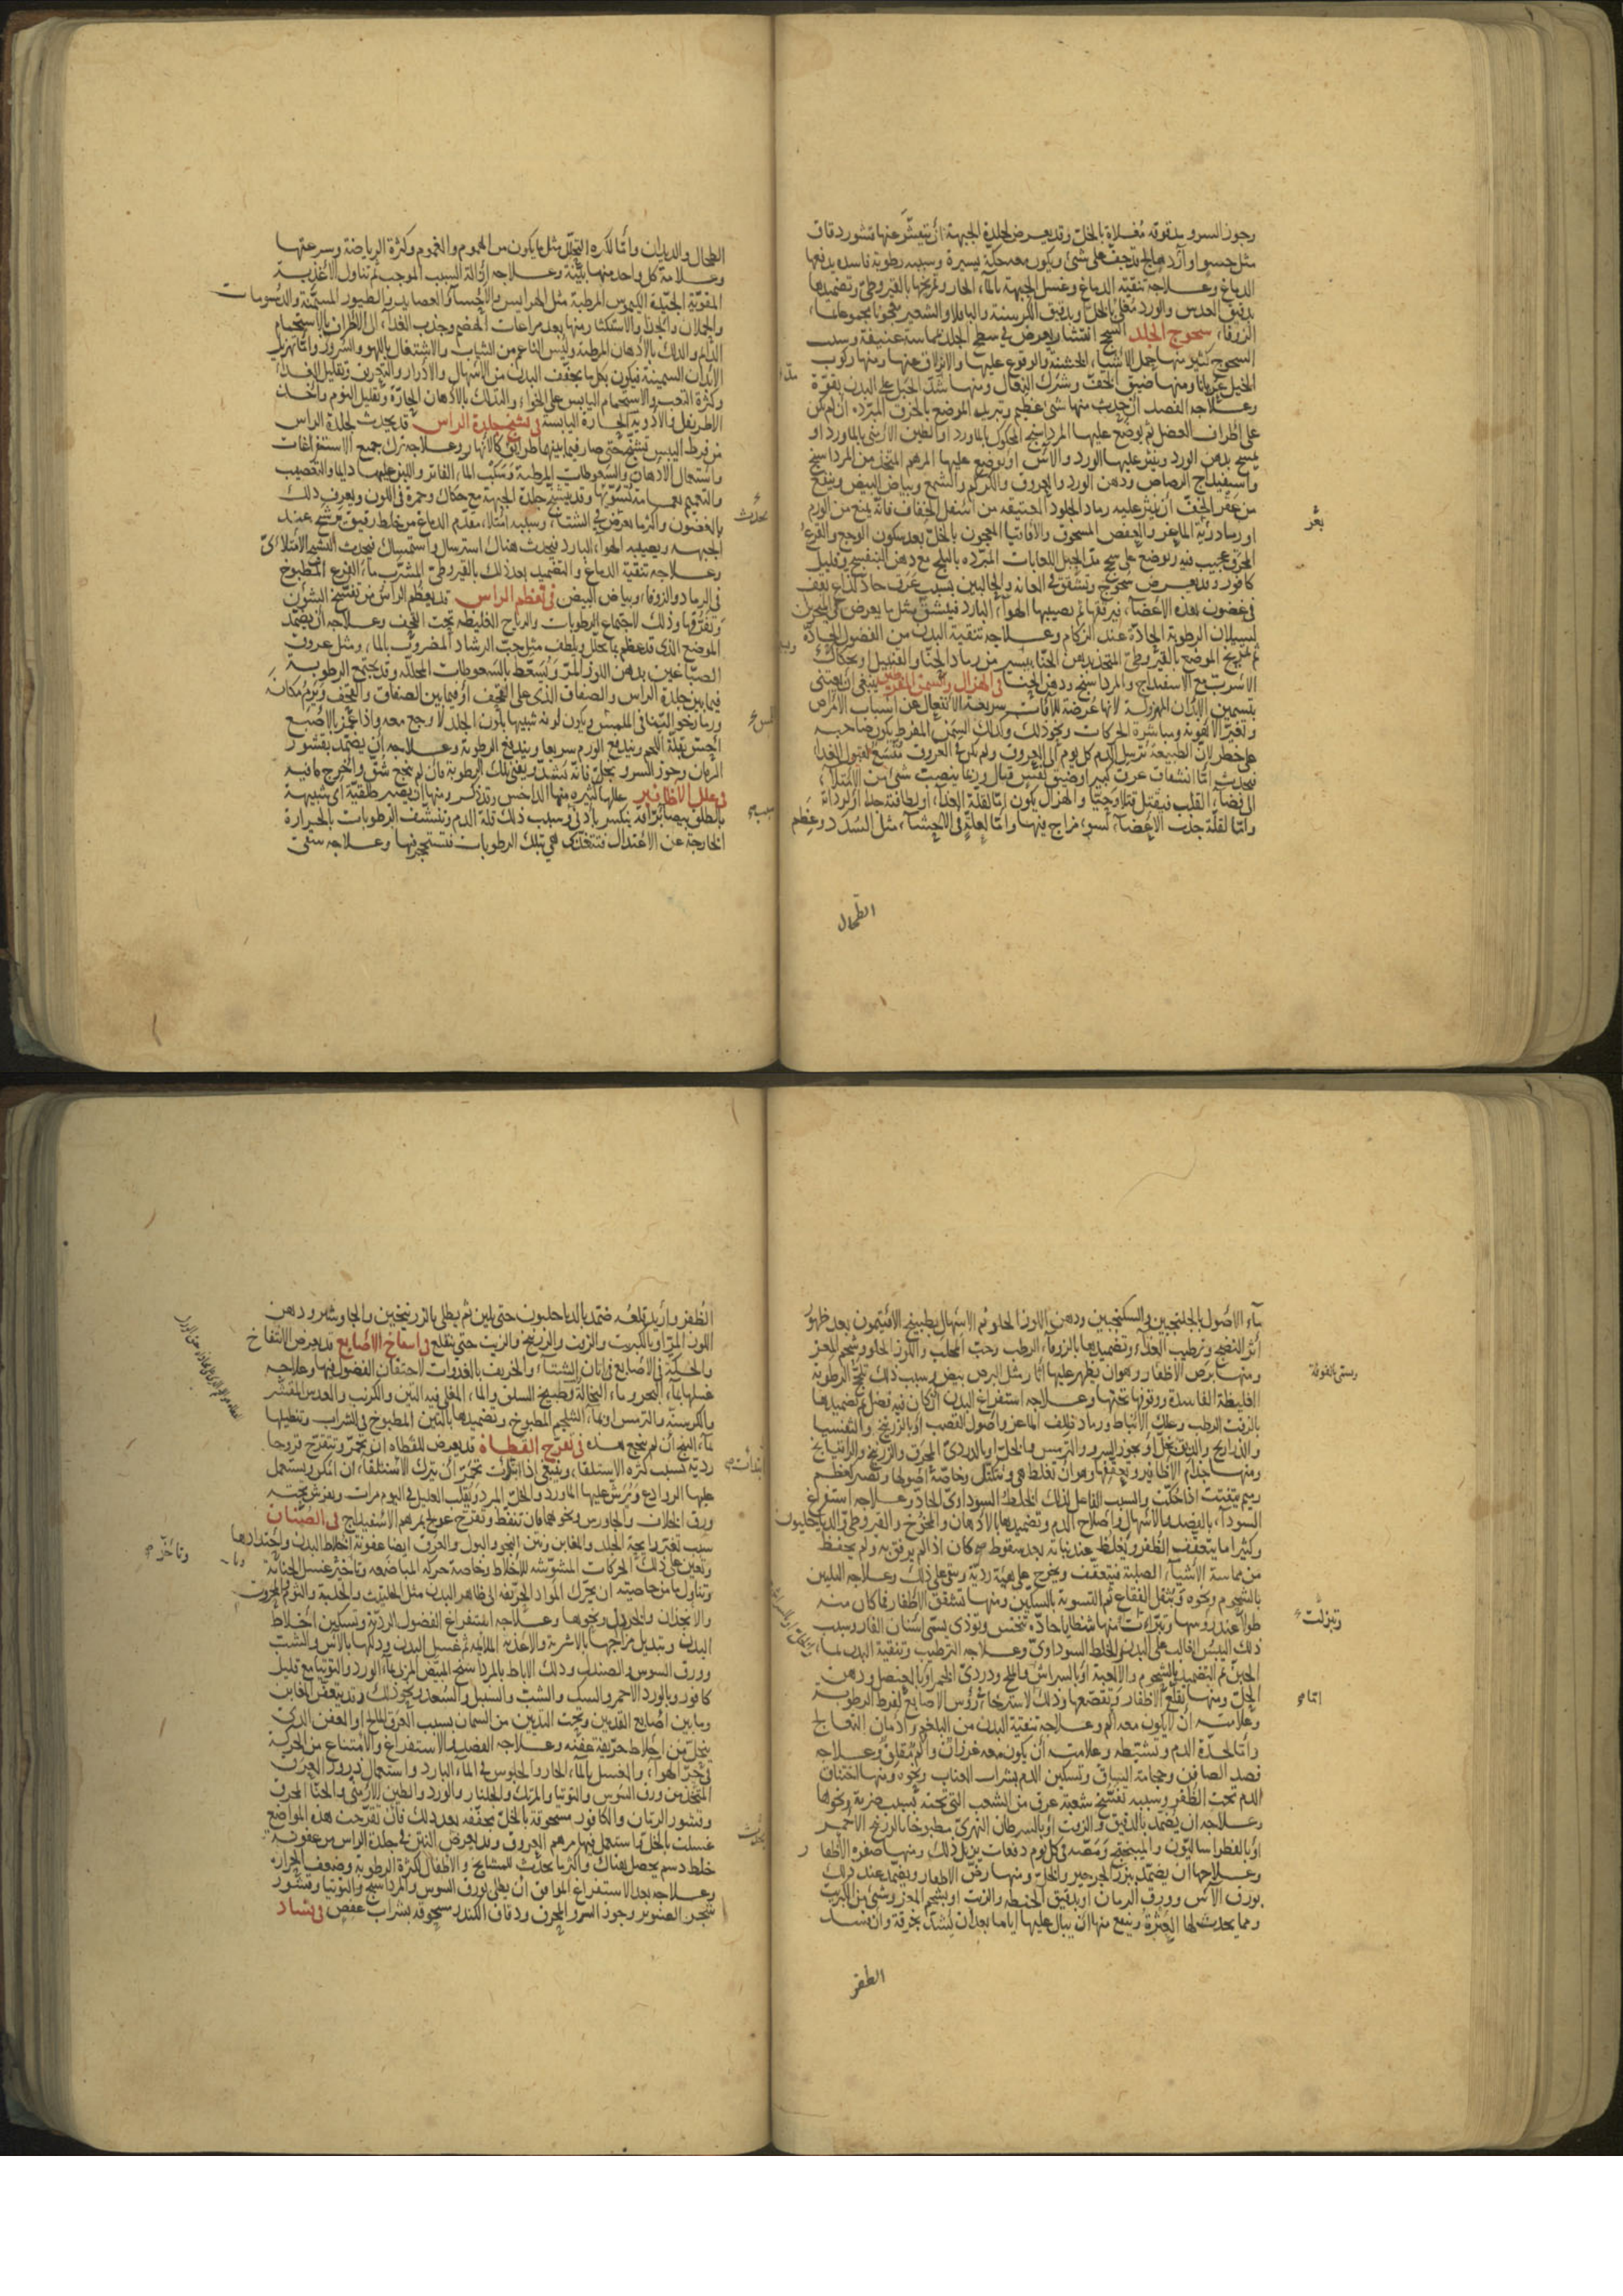 وجوز السرو مدقوقه مغلاة بالخل وقد يعرض لجلدة الجبهة ان يتقشر عنها قشور دقاق
الدماغ وعلاجه تنقية الدماغ وغسل الجبهة بالماء الحار وتمريخها بالقيروطى وتضميدها
بدقيق العدس والورد مغلى بالخل وبدقيق الكرسنة والباقلا والشعير معجونا بمجموعاتها
سحوج الجلد السحج انتشار يعرض فى سطح الجلد لمماسة عنيفة وسبب
السحوج كثير منها حمل الاشياء الخشنة والوقوع عليها والانزلاق عنها ومنها ركوب
الخيل عريانا ومنها ضيق الخف وشرك النعال ومنها شد الحبل على البدن بقوة
وعلاجه الفصد ان حدث منها شئ عظيم وتبريد الموضع بالخرق المبردة ان لم يكن
على اطراف العضل ثم يوضع عليها المرداسنج المحكوك بالماورد او الطين الارمنى بالماورد او
يمسح بدهن الورد وينثر عليها الورد والآس او يوضع عليها المرهم المتخذ من المرداسنج
واسفيداج الرصاص ودهن الورد والعروق والكركم والشمع وبياض البيض وينفع
من عقر الخف ان ينثر عليه رماد الجلود العتيقه من اسفل الخفاف فانه يمنع من الورم
او رماد رئة الماعز والعفص المسحوق والاقاقيا المعجون بالخل بعد سكون الوجع والقرع
المحرق عجيب فيه ويوضع على سحج مد الحبل اللعابات المبردة بالثلج مع دهن البنفسج وقليل
كافور وقد يعرض سحوج وتشقق فى العانة والحالبين بسبب عرق حاد لذاع يقف
فى غضون هذه الاعضاء فيرقها ثم يصيبها الهواء البارد فينشق مثل ما يعرض فى المنخرين
لسيلان الرطوبة الحادة عند الزكام وعلاجه تنقية البدن من الفضول الحادة
ثم تمريخ الموضع بالقيروطى المتخذ بدهن الحنا بيسير من رماد الحنا والقنبيل وحكاك
الاسرب مع الاسفيداج والمرداسنج ودهن الحنا فى الهزال والسمن المفرطين ينبغى ان يعتنى
بتسمين الابدان المهزولة لانها عرضة للآفات سريعة الانفعال عن اسباب الامراض
وتغير الاهوية ومباشرة الحركات ونحو ذلك وكذلك السمن المفرط يكون صاحبه
على خطر لان الطبيعة ترسل الدم كل يوم الى العروق ولم يكن فى العروق متسع لقبول الغذاء
فيحدث اما انشقاق عرق كبير او ضيق نفس قتال وربما ينصب شئ من الامتلاء
الى فضاء القلب فيقتل قتلا وحيا والهزال يكون اما لقلة الغذاء او لطافته جدا او لرداءته
واما لقلة جذب الاعضاء لسوء مزاج بينها واما لعلة فى الاحشاء مثل السدد وعظم
الطحال
بعر
الطحال والديدان واما لكثرة التحلل مثل ما يكون من الهموم والغموم وكثرة الرياضة وسرعتها
وعلامة كل واحد منها بينة وعلاجه ازالة السبب الموجب ثم تناول الاغذية
المقوية الجيدة الكيموس المرطبة مثل الهرايس والاحساء والعصايد والطيور المسمنة والدسومات
الدائم والدلك بالادهان المرطبة ولبس الناعم من الثياب والاشتغال باللهو والسرور واما تهزيل
الابدان السمينة فيكون بكل ما يجفف البدن من الاسهال والادرار والتعريق وتقليل الغذاء
وكثرة التعب والاستحمام اليابس على الخواء والتدلك بالادهان الحارة وتقليل النوم واتخاذ
الاطريفل والادوية الحارة اليابسة فى تشنج جلدة الراس قد يحدث لجلدة الراس
من فرط اليبس تشنج حتى صار فيما بينها طرائق كالانهار وعلاجه ترك جميع الاستفراغات
واستعمال الادهان والسعوطات المرطبة وسكب الماء الفاتر واللبن عليها دايما والتعصيب
والتعميم بعمامة تسويها وقد يتشنج جلدة الجبهة مع حكاك وحمرة فى اللون ويعرف ذلك
بالغضون واكثر ما يعرض فى الشتاء وسببه امتلاء مقدم الدماغ من خلط رقيق يترشح عند
الجبهة ويصيبه الهواء البارد فيحدث هناك استرسال واستمساك فيحدث التشنج الامتلائى
وعلاجه تنقية الدماغ والتضميد بعد ذلك بالقيروطى المشرب ماء القرع المطبوخ
فى الرماد والزوفا وبياض البيض فى تعظم الراس قد يعظم الراس من تفتح الشؤن
وتفرقها وذلك لاجتماع الرطوبات والرياح الغليظة تحت القحف وعلاجه ان يضمد
الموضع الذى قد عظم بما يحلل ويلطف مثل حب الرشاد المضروب بالماء ومثل عروق
الصباغين بدهن اللوز المر ويسعط بالسعوطات المحللة وقد يجتمع الرطوبة
فيما بين جلدة الراس والصفاق الذى على القحف او فيما بين الصفاق والقحف ويرم مكانه
ورما رخوا لينا فى الملمس ويكون لونه شبيها بلون الجلد لا وجع معه واذا غمز بالاصبع
احس بقلة اللحم ويندفع الورم سريعا ويندفع الرطوبة وعلاجه ان يضمد بقشور
الرمان وجوز السرو بخل فانه يشد ويفنى تلك الرطوبة فان لم ينجع شق واخرج ما فيه
فى علل الاظافير عللها كثيره منها الداخس وقد ذكر ومنها ان يصير طلقية اى شبيهة
بالطلق بيضا براقة ينكسر بادنى سبب وسبب ذلك قلة الدم وتنشف الرطوبات بالحرارة
الخارجة عن الاعتدال فتتحكك هى بتلك الرطوبات فتستحجر فيها وعلاجه سقى
يحدث
ماء الاصول بالجلنجبين والسكنجبين ودهن اللوز الحلو ثم الاسهال بطبيخ الافتيمون بعد ظهور
اثر النضج وترطيب الغذاء وتضميدها بالزوفا الرطب وحب المحلب واللوز الحلو وشحم المعز
ومنها برص الاظفار وهو ان يظهر عليها آثار مثل البرص بيض وسبب ذلك تلحج الرطوبة
الغليظة الفاسدة وركوزها تحتها وعلاجه استفراغ البدن ان كان فيه فضل ثم تضميدها
بالزفت الرطب وعلك الانباط ورماد ظلف الماعز واصول القصب او بالزرنيخ والثفسيا
والذراريح والدبق بخل او بجوز السرو والترمس والخل او بالدردى المحرق والزرنيخ والراتيانج
ومنها جذام الاظافير وتعقفها وهو ان تغلظ هى وتتكتل وخاصة اصولها وتصير كعظم
رميم يتفتت اذا حكت والسبب الفاعل لذلك الخلط السوداوى الحاد وعلاجه استفراغ
السوداء بالفصد والاسهال واصلاح الدم وتضميدها بالادهان والمخوخ والقيروطى والدياخيلون
وكثيرا ما يتعقف الظفر ويغلظ عند نباته بعد سقوط ما كان اذا لم يرفق به ولم يحفظ
من مماسة الاشياء الصلبة فيتعقف ويخرج على هيئة ردية ويبقى على ذلك وعلاجه التليين
بالشحوم ونحوه وبثفل الفقاع ثم التسوية بالسكين ومنها تشقق الاظفار فما كان منه
طولا عند رؤسها وتبرأت منها شظايا حادة تنخس وتؤذى يسمى اسنان الفار وسبب
ذلك اليبس الغالب على البدن والخلط السوداوى وعلاجه الترطيب وتنقية البدن بماء
الجبن ثم التضميد بالشحوم والالعبة او بالسراش والملح ودردى الخمر او بالعنصل ودهن
الخل ومنها تقلع الاظفار وتقصعها وذلك لاسترخاء رؤس الاصابع لفرط الرطوبة
وعلامته ان لا يكون معه الم وعلاجه تنقية البدن من البلغم وادمان التعالج
واما لحدة الدم وتشيطه وعلامته ان يكون معه ضربان والم مقلق وعلاجه
فصد الصافن وحجامة الساق وتسكين الدم بشراب العناب ونحوه ومنها اختناق
الدم تحت الظفر وسببه تفتح شعبة عرق من الشعب التى تحته بسبب ضربة ونحوها
وعلاجه ان يضمد بالدقيق والزفت او بالسرطان النهرى مطبوخا بالزرنيخ الاحمر
وعلاجها ان يضمد ببزر الجرجير والخل ومنها رض الاظفار ويضمد عند ذلك
بورق الآس وورق الرمان او بدقيق الحنطة والزيت او بشحم المعز وشئ من الكبريت
الظفر
الظفر واريد قلعه ضمد بالدياخيلون حتى يلين ثم يطلى بالزرنيخين والجاوشير ودهن
اللوز المر او بالكبريت والزفت والزرنيخ والزيت حتى ينقلع فى انتفاخ الاصابع قد يعرض الانتفاخ
والحكة فى الاصابع فى اوان الشتاء والخريف بالغدوات لاحتقان الفضول فيها وعلاجه
غسلها بماء البحر وماء النخالة وطبيخ السلق والماء المغلى فيه التين والكرنب والعدس المقشر
والكرسنه والترمس او بماء الشلجم المطبوخ وتضميدها بالتين المطبوخ فى الشراب وتنطيلها
بماء الثلج ان لم ينجح هذه فى تقرح القطاة قد يعرض للقطاة ان يحمر ويتقرح قروحا
ردية بسبب كثرة الاستلقاء وينبغى اذا ابتدأت تحمر ان يترك الاستلقاء ان امكن ويستعمل
عليها الروادع ويرش عليها الماورد والخل المبرد ويقلب العليل فى اليوم مرات ويفرش تحته
ورق الخلاف والجاورس ونحوهما فان تنفط وتقرح عولج بمرهم الاسفيداج فى الصنان
سبب تغير رايحة الجلد والمغابن ونتن النجو والبول والعرق ايضا عفونة اخلاط البدن واحتدادها
ويعين على ذلك الحركات المشوشه للاخلاط وخاصة حركة المباضعه وتاخير غسل الجنابة
وتناول ما من خاصيته ان يحرك المواد الحريفه الى ظاهر البدن مثل الحلتيت والحلبة والثوم والمحروث
والانجدان والخردل ونحوها وعلاجه استفراغ الفضول الردية وتسكين اخلاط
البدن وتبديل مزاجها بالاشربة والاغذية الملايمة ثم غسل البدن ودلكها بالآس والشبث
وورق السوس والصندل ودلك الاباط بالمرداسنج المبيض المربى بماء الورد والتوتيا مع قليل
كافور وبالورد الاحمر والسك والشب والسنبل والسعد ونحو ذلك وقد يتعفن المغابن
وما بين اصابع القدمين وتحت الثديين من السمان بسبب العرق المالح او العفن الذى
يتحلل من اخلاط حريفة عفنه وعلاجه الفصد والاستفراغ والامتناع من الحركة
فى حر الهواء والغسل بالماء الحار والجلوس فى الماء البارد واستعمال ذرور العرق
المتخذ من ورق السوس والتوتيا والمرتك والجلنار والورد والطين الارمنى والحنا المحرق
وقشور الرمان والكافور مسحوقة بالخل مجففه بعد ذلك فان تقرحت هذه المواضع
غسلت بالخل ثم استعمل فيها مرهم العروق وقد يعرض النتن فى جلدة الراس من عفونة
خلط دسم يحصل هناك واكثر ما يحدث للمشايخ والاطفال لكثرة الرطوبة وضعف الحرارة
وعلاجه بعد الاستفراغ الموافق ان يطلى بورق السوس والمرداسنج والتوتيا وقشور
شجر الصنوبر وجوز السرو المحرق ودقاق الكندر مسحوقه بشراب عفص فى فساد